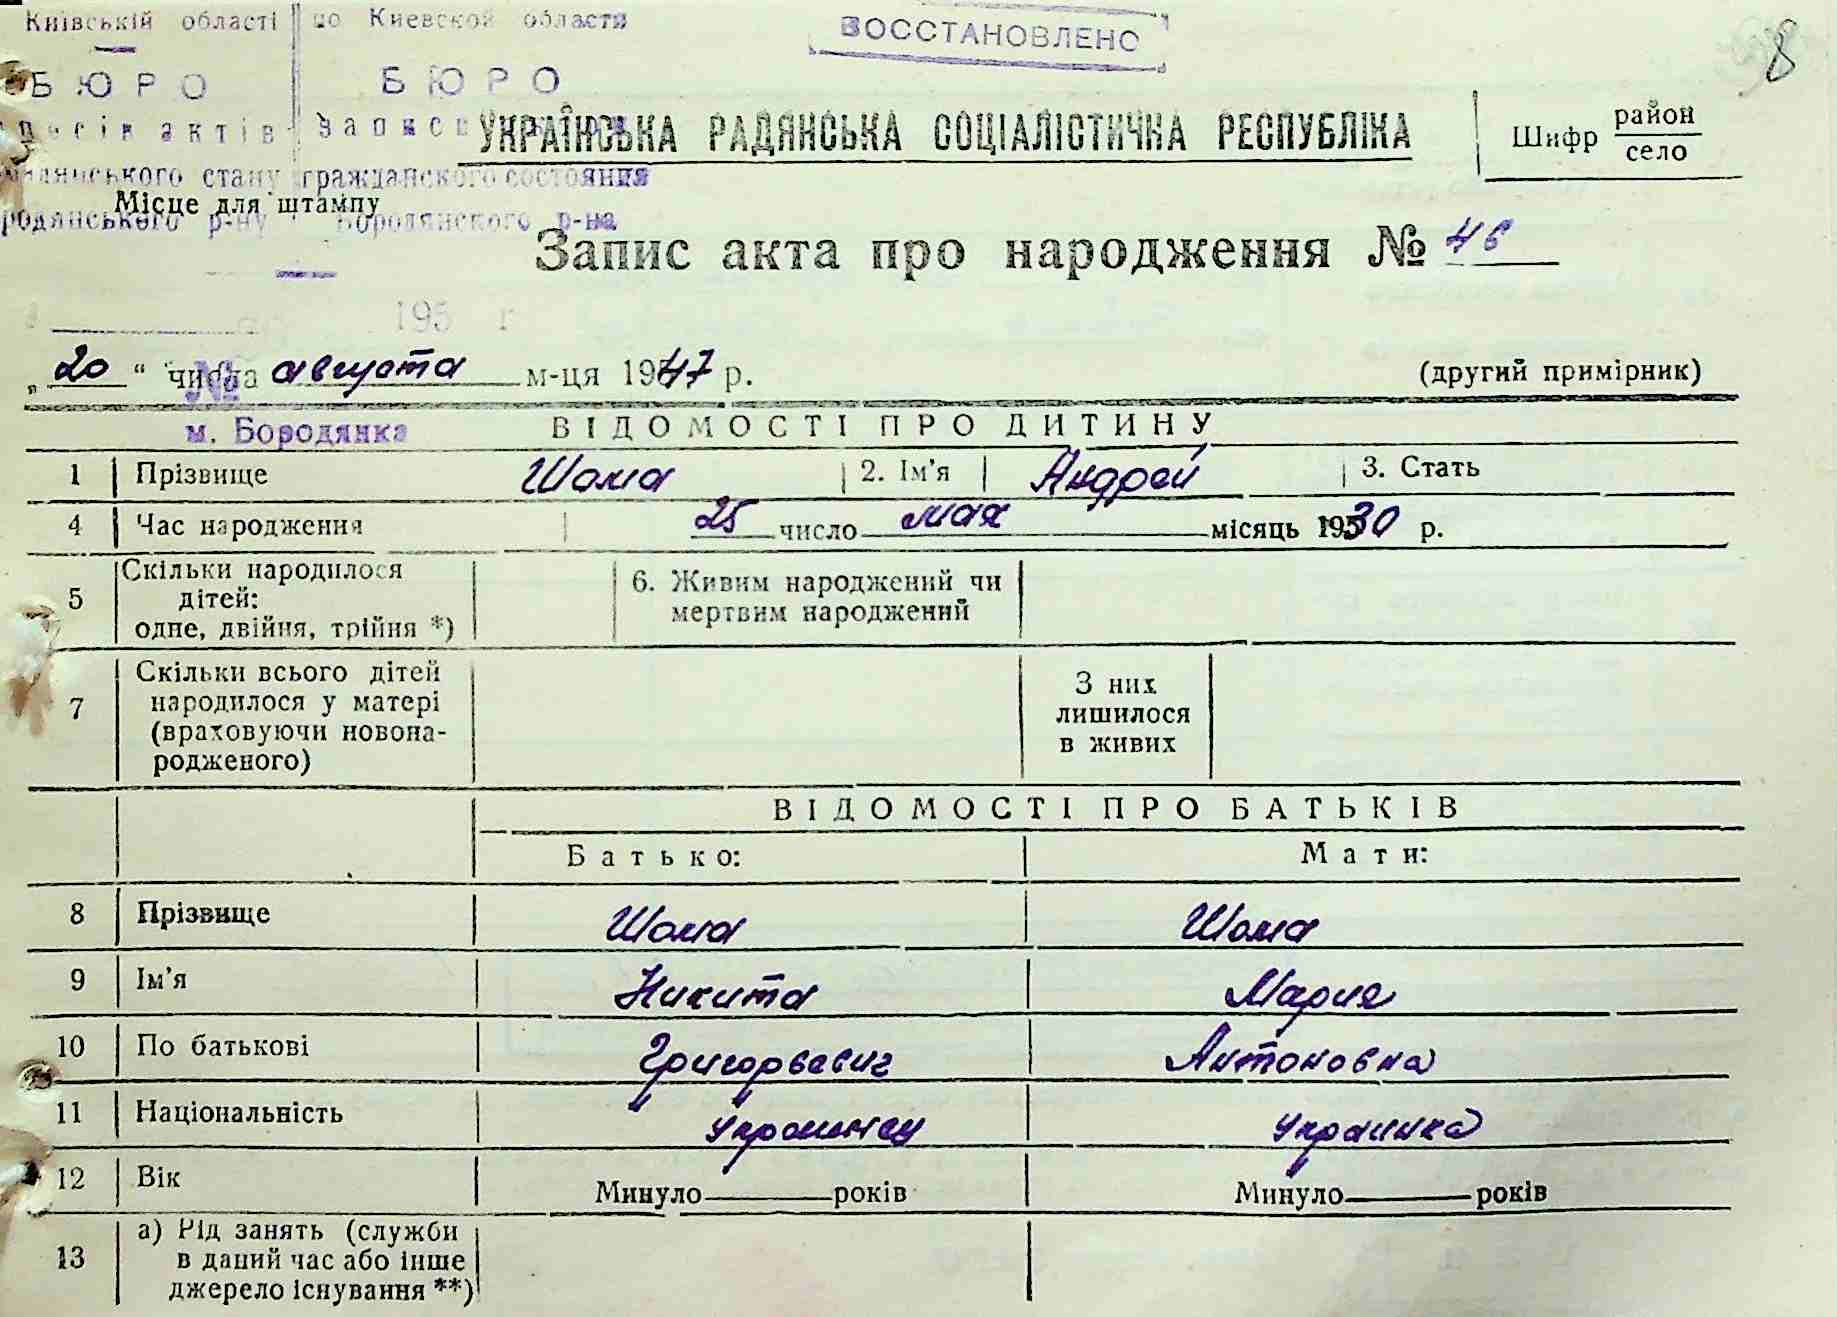 Київській області по Киевской области
ВОССТАНОВЛЕНО
8
БЮРО БЮРО
УКРАЇНСЬКА РАДЯНСЬКА СОЦІАЛІСТИЧНА РЕСПУБЛІКА
Шифр район
село
актів
стану гражданского состояния
Місце для штампу
р-ну Бородянского р-на
Запис акта про народження № 46
195 г
„20“ числа августа м-ця 1947 р. (другий примірник)
№
м. Бородянка
ВІДОМОСТІ ПРО ДИТИНУ
1 Прізвище Шома 2. Ім’я Андрей 3. Стать
4 Час народження 25 число мая місяць 1930 р.
5 Скільки народилося дітей: одне, двійня, трійня *) 6. Живим народжений чи мертвим народжений
7 Скільки всього дітей народилося у матері (враховуючи новонародженого) З них лишилося в живих
ВІДОМОСТІ ПРО БАТЬКІВ
Батько: Мати:
8 Прізвище Шома Шома
9 Ім’я Никита Мария
10 По батькові Григорьевич Антоновна
11 Національність украинец украинка
12 Вік Минуло років Минуло років
13 а) Рід занять (служби в даний час або інше джерело існування **)